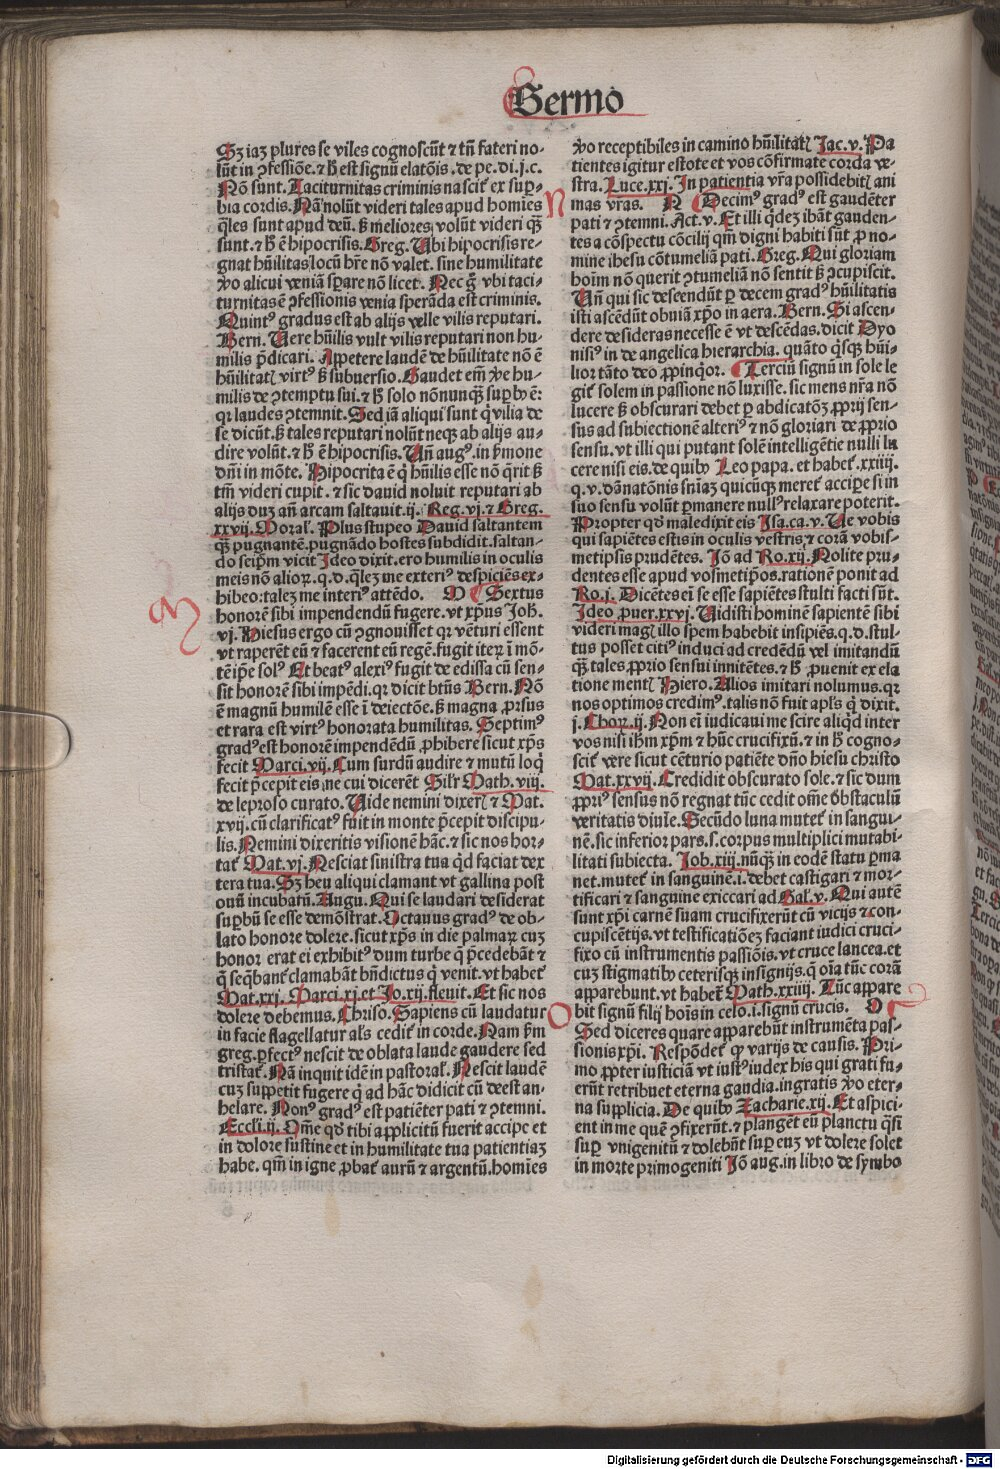 Sermo
Sz iaz plures se viles cognoscūt ⁊ tn̄ fateri no-
lūt in ꝯfessiōe. ⁊ hͦ est signū elatōis. de pe. di. j. c.
Nō sunt. Taciturnitas criminis nascit᷑ ex suꝑ-
bia cordis. Nā nolūt videri tales apud homīes
q̄les sunt apud deū. sꝫ meliores, volūt videri qꝫ
sunt. ⁊ hͦ ē hipocrisis. Greg. Ubi hipocrisis re-
gnat hūilitas locū hr̄e nō valet. sine humilitate
ꝟo alicui veniā sꝑare nō licet. Nec g̊ vbi taci-
turnitas ē ꝯfessionis venia sperāda est criminis.
Quintꝰ gradus est ab alijs velle vilis reputari.
Bern. Uere hūilis vult vilis reputari non hu-
milis p̄dicari. Appetere laudē de hūilitate nō ē
hūilitatꝭ virtꝰ sꝫ subuersio. Gaudet em̄ ꝟe hu-
milis de ꝯtemptu sui. ⁊ hͦ solo nōnunqꝫ suꝑbꝰ ē:
qꝛ laudes ꝯtemnit. Sed iā aliqui sunt q̇ vilia de
se dicūt. sꝫ tales reputari nolūt neqꝫ ab alijs au-
dire volūt. ⁊ hͦ ē hipocrisis. Uñ augꝰ. in ẜmone
dn̄i in mōte. Hipocrita ē q̇ hūilis esse nō q̄rit sꝫ
tm̄ videri cupit. ⁊ sic dauid noluit reputari ab
alijs dum añ arcam saltauit. ij. Reg. vj. ⁊ Greg.
xxvij. Moral. Plus stupeo Dauid saltantem
qꝫ pugnantē. pugnādo hostes subdidit. saltan-
do seip̄m vicit Ideo dixit. ero humilis in oculis
meis nō alioꝝ. q. d. q̄lez me exteriꝰ despiciēs ex-
hibeo: talez me interiꝰ attēdo. M Sextus
honorē sibi impendendū fugere. vt xp̄us Joh.
vj. Hiesus ergo cū ꝯgnouisset qꝛ vēturi essent
vt raperēt eū ⁊ facerent eū regē. fugit iteꝝ ī mō-
tē ip̄e solꝰ Et beatꝰ alexiꝰ fugit de edissa cū sen-
sit honorē sibi impēdi. qꝛ dicit btūs Bern. Nō
ē magnū humilē esse ī deiectōe. sꝫ magna ꝓrsus
et rara est virtꝰ honorata humilitas. Septimꝰ
gradꝰ est honorē impendēdū ꝓhibere sicut xp̄s
fecit Marci. vij. Cum surdū audire ⁊ mutū loqͥ
fecit p̄cepit eis, ne cui dicerēt Silr̄ Math. viij.
de leproso curato. Uide nemini dixerꝭ ⁊ Mat.
xvij. cū clarificatꝰ fuit in monte p̄cepit discipu-
lis. Nemini dixeritis visionē hāc. ⁊ sic nos hor-
tat᷑ Mat. vj. Nesciat sinistra tua qͥd faciat dex
tera tua. Sꝫ heu aliqui clamant vt gallina post
ouū incubatū. Augu. Qui se laudari desiderat
suꝑbū se esse demōstrat. Octauus gradꝰ de ob-
lato honore dolere. sicut xp̄s in die palmaꝝ cuꝫ
honor erat ei exhibitꝰ dum turbe q̄ p̄cedebāt ⁊
q̄ seq̄bant᷑ clamabāt bn̄dictus q̇ venit. vt habet᷑
Mat. xxj. Marci. xj. et Jo. xij. fleuit. Et sic nos
dolere debemus. Chriso. Sapiens cū laudatur
in facie flagellatur als cedit᷑ in corde. Nam ẜm
greg. ꝑfectꝰ nescit de oblata laude gaudere sed
tristat᷑. Nā inquit idē in pastoral. Nescit laudē
cuꝫ suppetit fugere q̇ ad hāc didicit cū deest an-
helare. Nonꝰ gradꝰ est patiēter pati ⁊ ꝯtemni.
Eccli. ij. Om̄e qd̄ tibi applicitū fuerit accipe et
in dolore sustine et in humilitate tua patientiaꝫ
habe. qm̄ in igne ꝓbat᷑ aurū ⁊ argentū. homīes
ꝟo receptibiles in camino hūilitatꝭ Jac. v. Pa
tientes igitur estote et vos cōfirmate corda ve-
stra. Luce. xxj. In patientia vr̄a possidebitꝭ ani
mas vr̄as. N Decimꝰ gradꝰ est gaudēter
pati ⁊ ꝯtemni. Act. v. Et illi qͥdez ibāt gauden-
tes a cōspectu cōcilij qm̄ digni habiti sūt ꝓ no-
mine ihesu cōtumeliā pati. Greg. Qui gloriam
hoīm nō querit ꝯtumeliā nō sentit sꝫ ꝯcupiscit.
Uñ qui sic descendūt ꝑ decem gradꝰ hūilitatis
isti ascēdūt obuiā xp̄o in aera. Bern. Si ascen-
dere desideras necesse ē vt descēdas. dicit Dyo
nisiꝰ in de angelica hierarchia. quāto q̇sqꝫ hūi-
lior tāto deo ꝓpinqͦr. Terciū signū in sole le
git᷑ solem in passione nō luxisse. sic mens nr̄a nō
lucere sꝫ obscurari debet ꝑ abdicatōꝫ ꝓprij sen-
sus ad subiectionē alteriꝰ ⁊ nō gloriari de ꝓprio
sensu. vt illi qui putant solē intelligētie nulli lu
cere nisi eis. de quibꝰ Leo papa. et habet᷑. xxiiij.
q. v. dānatōnis sn̄iaꝫ quicūqꝫ meret᷑ acciꝑe si in
suo sensu volūt ꝑmanere nullꝰ relaxare poterit.
Propter qd̄ maledixit eis Isa. ca. v. Ue vobis
qui sapiētes estis in oculis vestris, ⁊ corā vobis-
metipsis prudētes. Jō ad Ro. xij. Nolite pru-
dentes esse apud vosmetip̄os. rationē ponit ad
Ro. j. Dicētes ei se esse sapiētes stulti facti sūt.
Ideo ꝓuer. xxvj. Uidisti hominē sapientē sibi
videri magꝭ illo spem habebit insipiēs. q. d. stul-
tus posset citiꝰ induci ad credēdū vel imitandū
qꝫ. tales ꝓprio sensui innitētes. ⁊ hͦ ꝓuenit ex ela
tione mentꝭ Hiero. Alios imitari nolumus. qꝛ
nos optimos credimꝰ. talis nō fuit apl̄s q̇ dixit.
j. Choꝝ. ij. Non ei iudicaui me scire aliqͥd inter
vos nisi ihm̄ xp̄m ⁊ hūc crucifixū. ⁊ in hͦ cogno-
scit᷑ vere sicut cēturio patiēte dn̄o hiesu christo
Mat. xxvij. Credidit obscurato sole. ⁊ sic dum
ꝓpriꝰ sensus nō regnat tūc cedit om̄e obstaculū
veritatis diuīe. Secūdo luna mutet᷑ in sangui-
nē. sic inferior pars. s. corpus multiplici mutabi-
litati subiecta. Job. xiij. nūqꝫ in eodē statu ꝑma
net. mutet᷑ in sanguinē. i. debet castigari ⁊ mor-
tificari ⁊ sanguine exiccari ad Gal. v. Qui autē
sunt xp̄i carnē suam crucifixerūt cū vicijs ⁊ con-
cupiscētijs. vt testificatiōeꝫ faciant iudici cruci-
fixo cū instrumentis passiōis. vt cruce lancea. et
cuꝫ stigmatibꝰ ceterisqꝫ insignijs. q̄ oīa tūc corā
apparebunt. vt habet᷑ Math. xxiiij. Tūc appare
bit signū filij hoīs in celo. i. signū crucis. O
Sed diceres quare apparebūt instrumēta pas-
sionis xp̄i. Respōdet᷑ ꝙ varijs de causis. Pri-
mo ꝓpter iusticiā vt iustꝰ iudex his qui grati fu-
erūt retribuet eterna gaudia. ingratis ꝟo eter-
na supplicia. De quibꝰ Zacharie. xij. Et aspici-
ent in me quē ꝯfixerūt. ⁊ planget᷑ eū planctu q̄si
suꝑ vnigenitū ⁊ dolebūt suꝑ euꝫ vt dolere solet
in morte primogeniti Jō aug. in libro de symbo
M
N
O
Digitalisierung gefördert durch die Deutsche Forschungsgemeinschaft - DFG